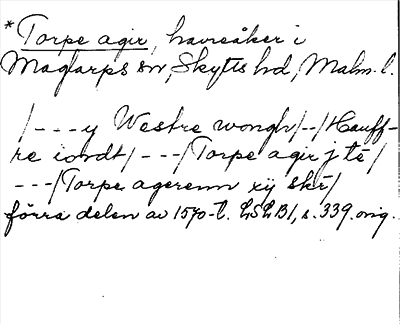 *Torpe agir, havreåker i
Maglarps sn, Skytts hd, Malm. l.
/---y Westre wongh/--/Hauff-
re iordt/---/Torpe agir j tē/
---/Torpe agerenn xij skī/
förra delen av 1570-t. LSLB1, s. 339. orig.